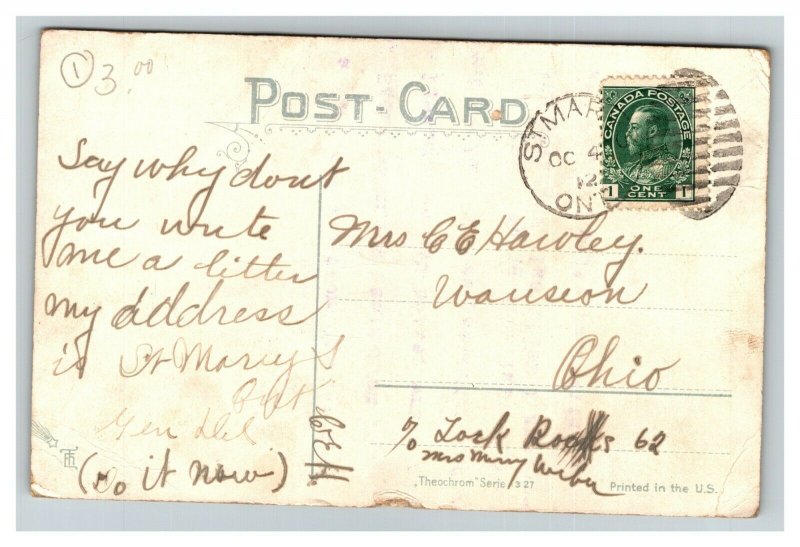 1 3.00
POST-CARD
ST MAR
OC 4
12
ONT
CANADA POSTAGE
1 ONE CENT 1
Say why dont
you write
me a litter
my address
is St Marys
Ont
Gen Del
(Do it now)
C.E.H.
Mrs C E Hawley.
Wauseon
Ohio
% Lock Box 62
Mrs Mary Weber
„Theochrom" Serie 327
Printed in the U.S.